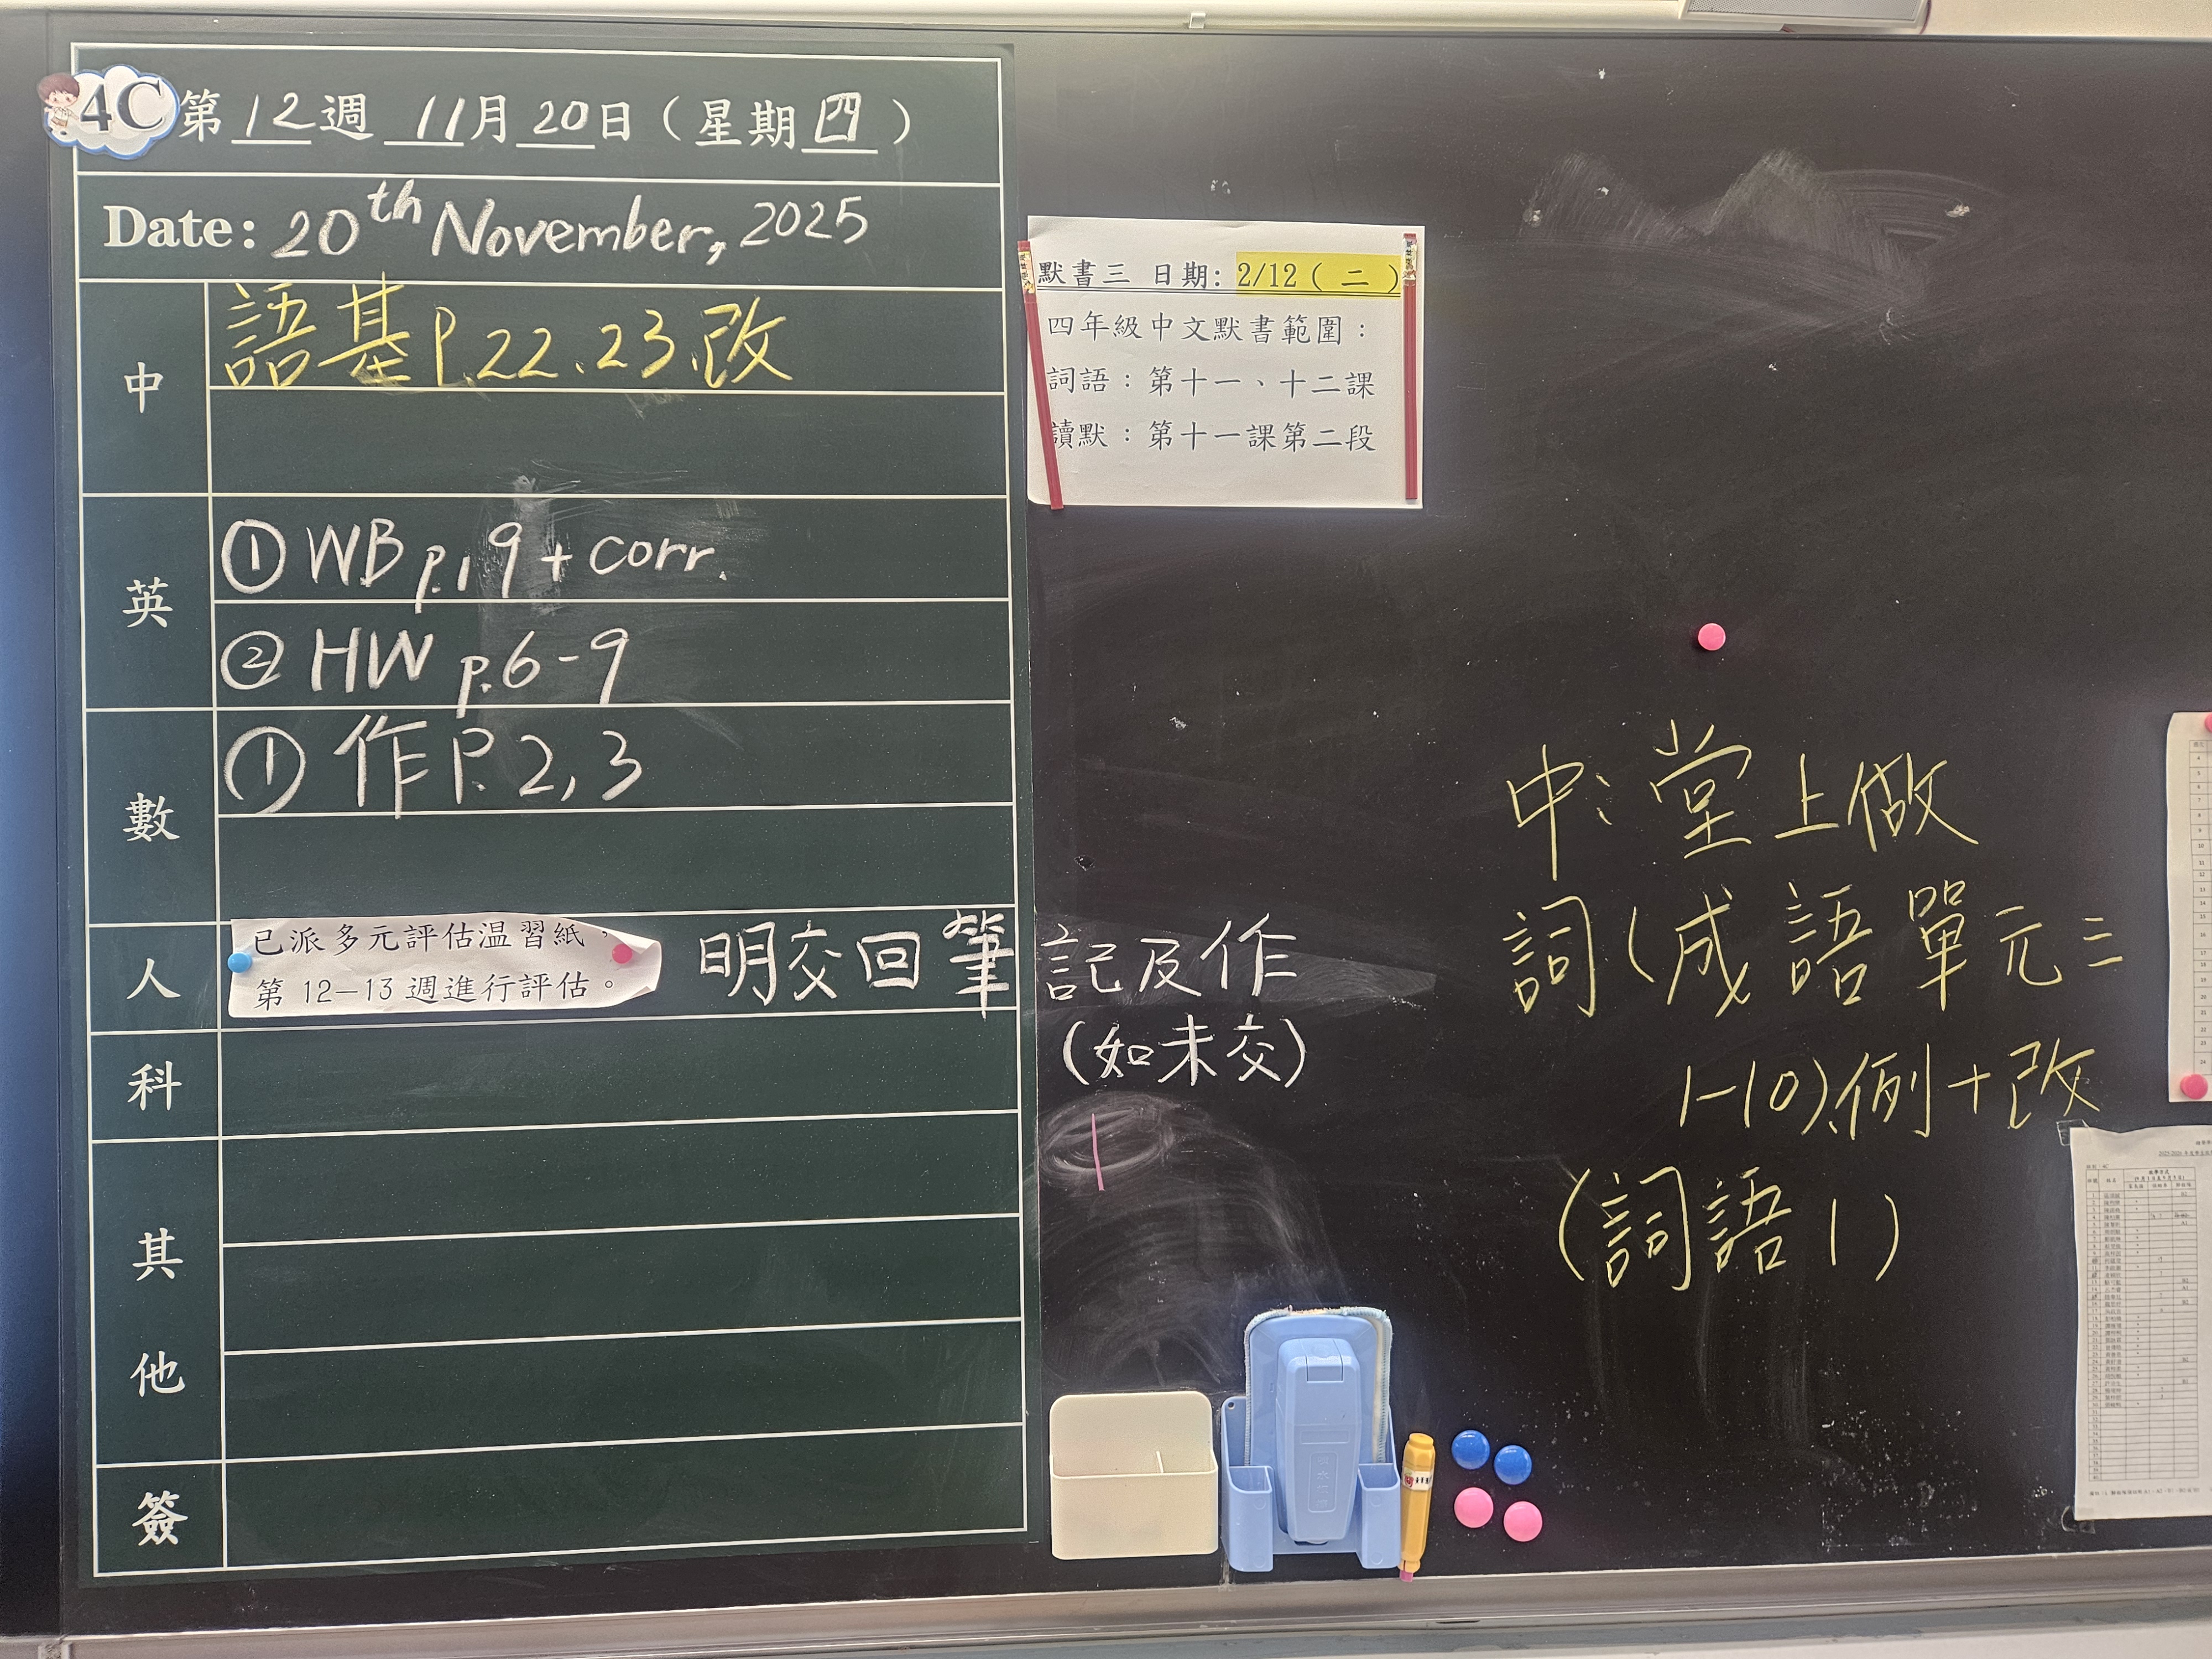 4C 第 12 週 11 月 20 日（星期 四 ）
Date: 20th November, 2025
中
語基 P.22.23.改
英
① WB p.19 + corr.
② HW p.6-9
數
① 作 P.2,3
人
已派多元評估温習紙，
第 12–13 週進行評估。
明交回筆記及作
(如未交)
科
其他
簽
默書三 日期: 2/12 ( 二 )
四年級中文默書範圍：
詞語：第十一、十二課
讀默：第十一課第二段
中：堂上做
詞(成語單元三
1-10).例+改
(詞語1)